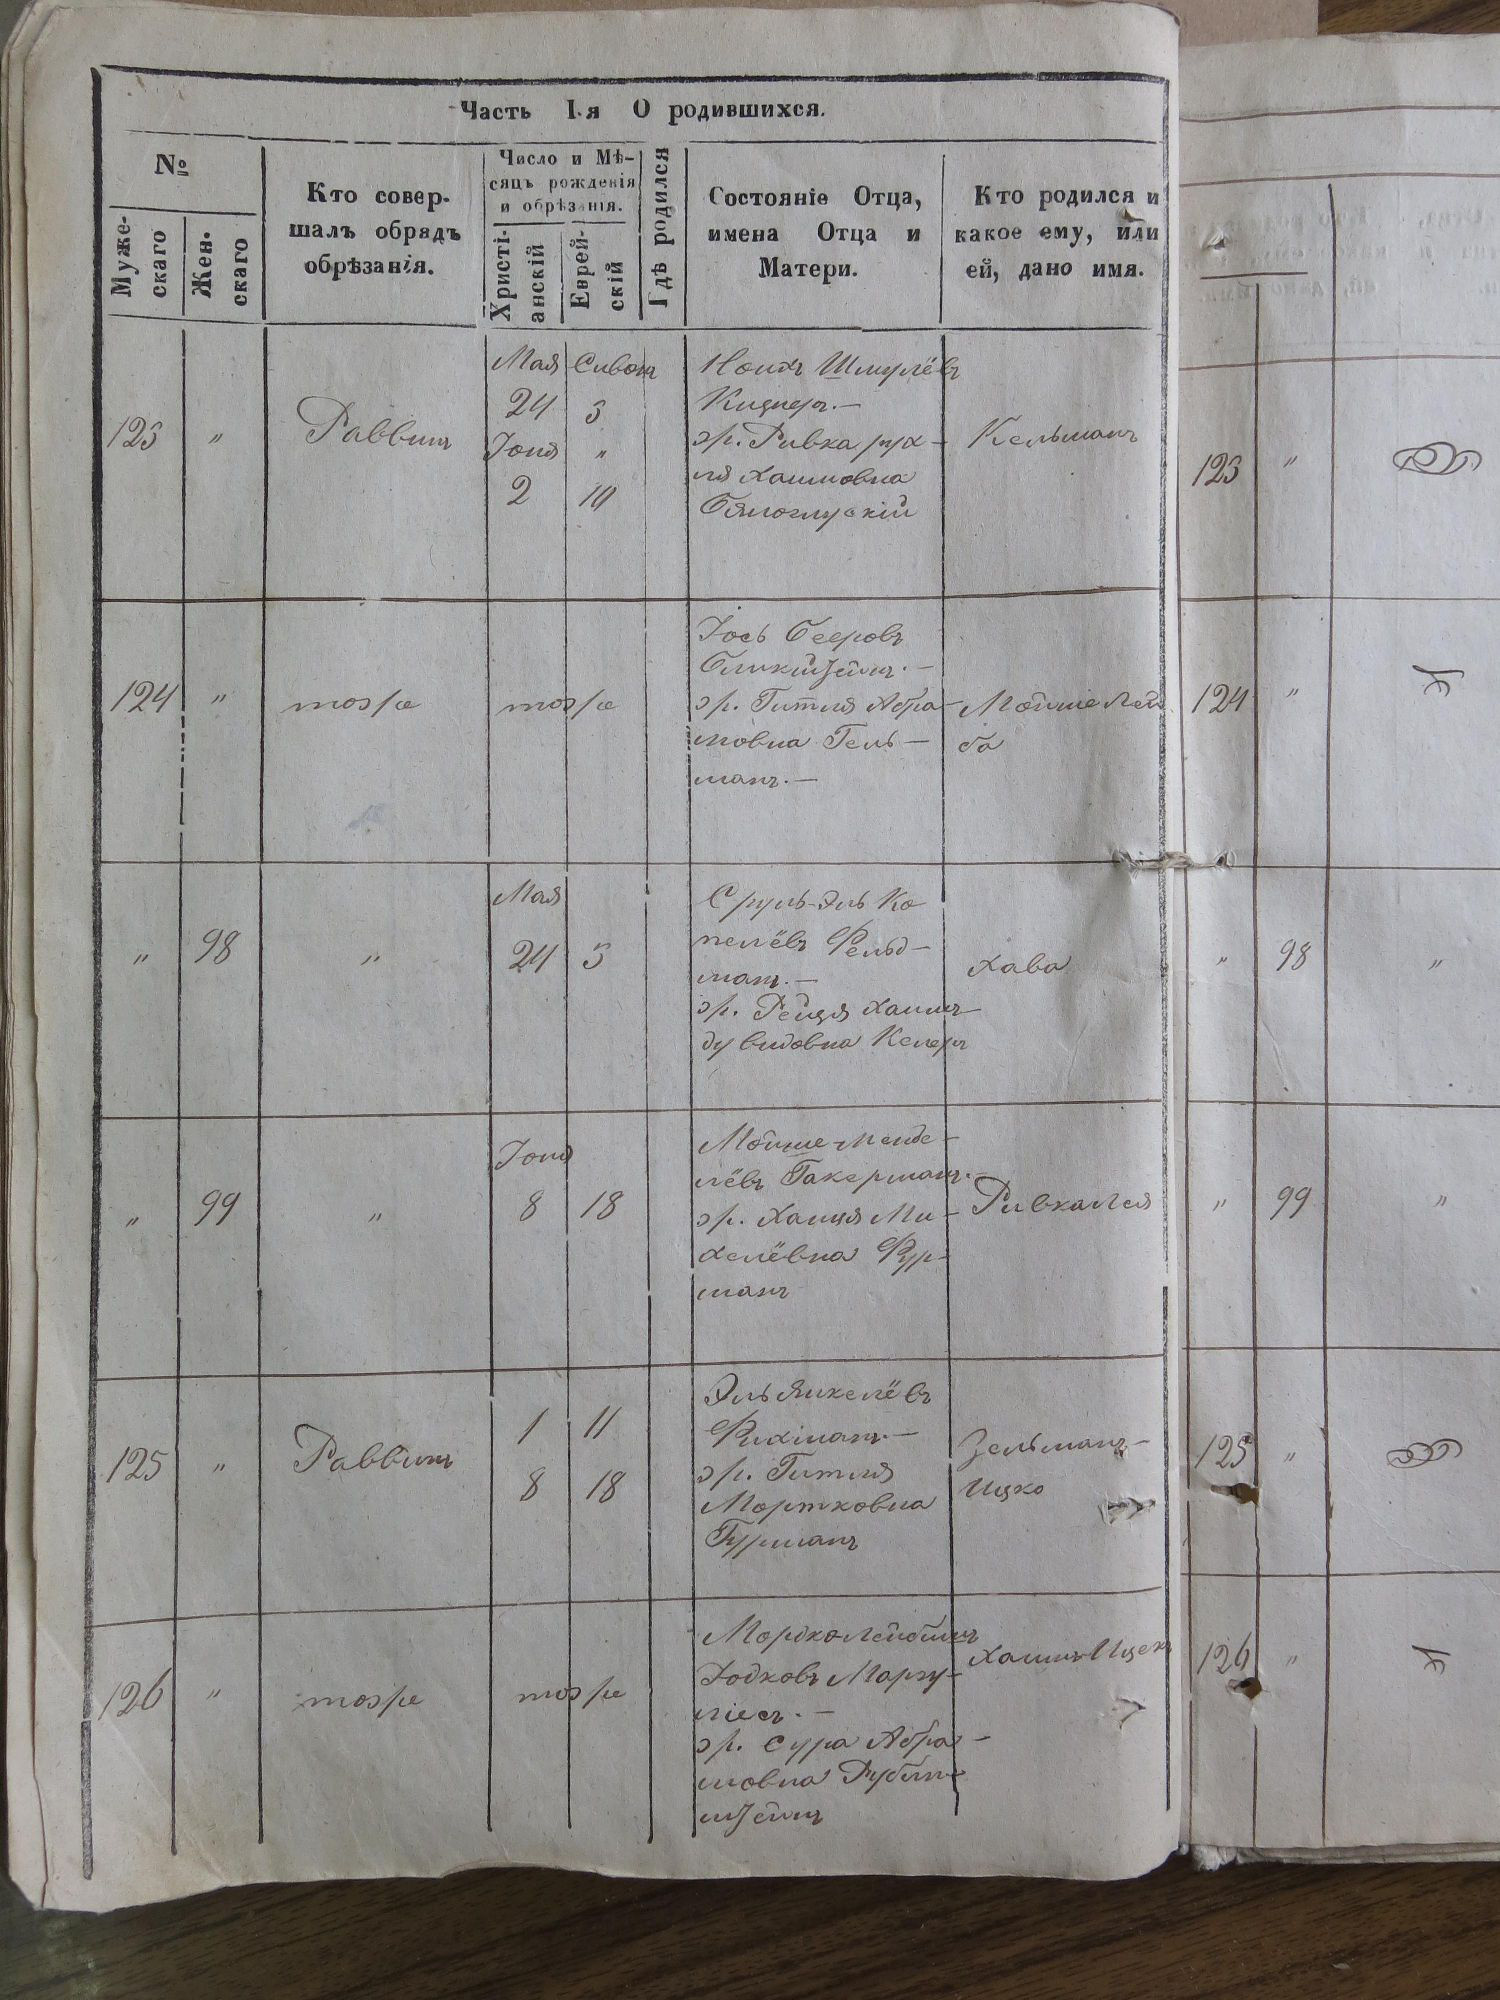 Часть I-я О родившихся.
№
Муже-
скаго
Жен-
скаго
Кто совер-
шалъ обрядъ
обрѣзанія.
Число и Мѣ-
сяцъ рожденія
и обрѣзанія.
Христі-
анскій
Еврей-
скій
Гдѣ родился
Состояніе Отца,
имена Отца и
Матери.
Кто родился и
какое ему, или
ей, дано имя.
123 " Раввинъ
Мая Сивона
24 3
Іюня "
2 10
Шмулёвъ
эр. Ривка рух-
ля Хаимовна
Кельманъ
123 "
124 " тоэре тоэре
Іось Бееровъ
эр. Гитля Абра-
мовна Гель-
манъ.-
Мойше Лей
ба
124 "
" 98 "
Мая
24 3
Сруль-Эль Ко
пелёвъ Фельд-
манъ.-
эр. Рейзя Хаимъ
дувидовна Келеръ
Хава
" 98 "
" 99 "
Іюня
8 18
Мойше-Менде-
лёвъ Гакерманъ.-
эр. Хаиця Ми-
хелёвна Фур-
манъ
Ривка Лея
" 99 "
125 " Раввинъ
1 11
8 18
Эль Янкелёвъ
Фихманъ.-
эр. Гитля
Мортковна
Гурманъ
Зельманъ-
Ицко
125 "
126 " тоэре тоэре
Мордко Лейбишъ
Іодковъ Маргу-
ліесъ.-
эр. Сура Абра-
мовна Рубин-
штейнъ
Хаимъ Ицекъ
126 "